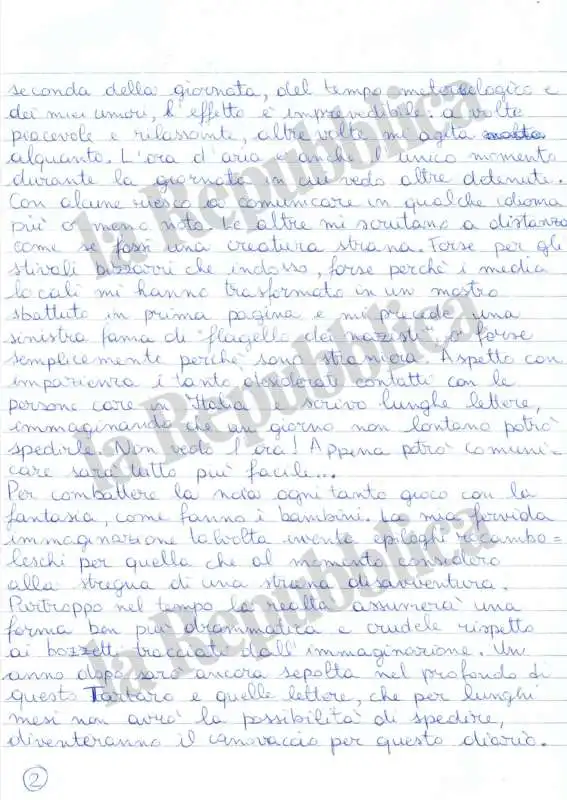 seconda della giornata, del tempo meteorologico e
dei miei umori, l'effetto è imprendibile: a volte
piacevole e rilassante, altre volte mi agita molto
alquanto. L'ora d'aria è anche l'unico momento
durante la giornata in cui vedo altre detenute.
Con alcune riesco a comunicare in qualche idioma
più o meno noto. Le altre mi scrutano a distanza
come se fossi una creatura strana. Forse per gli
stivali bizzarri che indosso, forse perché i media
locali mi hanno trasformato in un mostro
sbattuto in prima pagina e mi precede una
sinistra fama di "flagello dei nazisti" o forse
semplicemente perché sono straniera. Aspetto con
impazienza i tanto desiderati contatti con le
persone care in Italia e scrivo lunghe lettere,
immaginando che un giorno non lontano potrò
spedirle. Non vedo l'ora! Appena potrò comuni-
care sarà tutto più facile...
Per combattere la noia ogni tanto gioco con la
fantasia, come fanno i bambini. La mia fervida
immaginazione talvolta inventa epiloghi rocambo=
leschi per quella che al momento considero
alla stregua di una strana disavventura.
Purtroppo nel tempo la realtà assumerà una
forma ben più drammatica e crudele rispetto
ai bozzetti tracciati dall'immaginazione. Un
anno dopo sarò ancora sepolta nel profondo di
questo Tartaro e quelle lettere, che per lunghi
mesi non avrò la possibilità di spedire,
diventeranno il canovaccio per questo diario.
2
la Repubblica
la Repubblica
la Repubblica